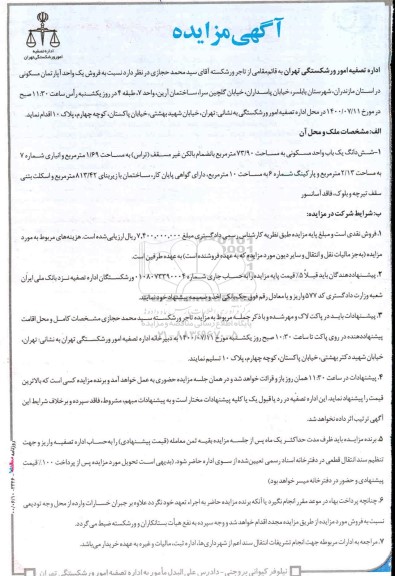 آگهی مزایده
اداره تصفیه
امور ورشکستگی تهران
اداره تصفیه امور ورشکستگی تهران به قائم‌مقامی از تاجر ورشکسته آقای سید محمد حجازی در نظر دارد نسبت به فروش یک واحد آپارتمان مسکونی
در استان مازندران، شهرستان بابلسر، خیابان پاسداران، خیابان گلچین سرا، ساختمان آرین، واحد ۷، طبقه ۴ در روز یکشنبه رأس ساعت ۱۱:۳۰ صبح
در مورخ ۱۴۰۰/۰۷/۱۱ در محل اداره تصفیه امور ورشکستگی به نشانی: تهران، خیابان شهید بهشتی، خیابان پاکستان، کوچه چهارم، پلاک ۱۰ اقدام نماید.
الف: مشخصات ملک و محل آن
۱-شش‌دانگ یک باب واحد مسکونی به مساحت ۷۳/۹۰ مترمربع بانضمام بالکن غیر مسقف (تراس) به مساحت ۱/۶۹ مترمربع و انباری شماره ۷
به مساحت ۲/۱۳ مترمربع و پارکینگ شماره ۶ به مساحت ۱۰ مترمربع، دارای گواهی پایان کار، ساختمان با زیربنای ۸۱۳/۴۲ مترمربع و اسکلت بتنی
سقف تیرچه و بلوک، فاقد آسانسور
ب: شرایط شرکت در مزایده:
۱. فروش نقدی است و مبلغ پایه مزایده طبق نظریه کارشناس رسمی دادگستری مبلغ ۷,۴۰۰,۰۰۰,۰۰۰ ریال ارزیابی شده است. هزینه‌های مربوط به مورد
مزایده (به جز مالیات نقل و انتقال و سایر دیون مورد مزایده که به عهده فروشنده است) به عهده طرفین است.
۲. پیشنهاددهندگان باید قبلاً ۵٪ قیمت پایه مزایده را به حساب جاری شماره ۰۱۰۸۰۷۳۳۹۰۰۰۴ ورشکستگان اداره تصفیه نزد بانک ملی ایران
شعبه وزارت دادگستری کد ۵۷۷ واریز و یا معادل رقم فوق چک بانکی اخذ و ضمیمه پیشنهاد خود نمایند.
۳. پیشنهادات باید در پاکت لاک و مهر شده و با ذکر جمله مربوط به مزایده تاجر ورشکسته سید محمد حجازی مشخصات کامل و محل اقامت
پیشنهاددهنده در روی پاکت تا ساعت ۱۰:۳۰ صبح روز یکشنبه مورخ ۱۴۰۰/۰۷/۱۱ به دبیرخانه اداره تصفیه امور ورشکستگی تهران به نشانی: تهران،
خیابان شهید دکتر بهشتی، خیابان پاکستان، کوچه چهارم، پلاک ۱۰ تسلیم نمایند.
۴. پیشنهادات در ساعت ۱۱:۳۰ همان روز باز و قرائت خواهد شد و در همان جلسه مزایده حضوری به عمل خواهد آمد و برنده مزایده کسی است که بالاترین
قیمت را پیشنهاد نماید. این اداره تصفیه در رد یا قبول یک یا کلیه پیشنهادات مختار است و به پیشنهادات مبهم، مشروط، فاقد سپرده و برخلاف شرایط این
آگهی ترتیب اثر داده نخواهد شد.
۵. برنده مزایده باید ظرف مدت حداکثر یک ماه پس از جلسه مزایده بقیه ثمن معامله (قیمت پیشنهادی) را به حساب اداره تصفیه واریز و جهت
تنظیم سند انتقال قطعی در دفترخانه اسناد رسمی تعیین شده از سوی اداره حاضر شود. (بدیهی است تحویل مورد مزایده پس از پرداخت ۱۰۰٪ قیمت
پیشنهادی و حضور در دفترخانه میسر خواهد بود)
۶. چنانچه پرداخت بهاء در موعد مقرر انجام نگیرد یا آنکه برنده مزایده حاضر به اجراء تعهد خود نگردد علاوه بر جبران خسارات وارده از محل وجه تودیعی
نسبت به فروش مورد مزایده از طریق مزایده مجدد اقدام خواهد شد و وجه سپرده به نفع هیأت بستانکاران و ورشکسته ضبط می‌گردد.
۷. مراجعه به ادارات مربوطه جهت انجام تشریفات انتقال سند اعم از شهرداری‌ها، اداره ثبت، مالیات و غیره به عهده خریدار می‌باشد.
نیلوفر کیوانی بروجنی - دادرس علی البدل مأمور به اداره تصفیه امور ورشکستگی تهران